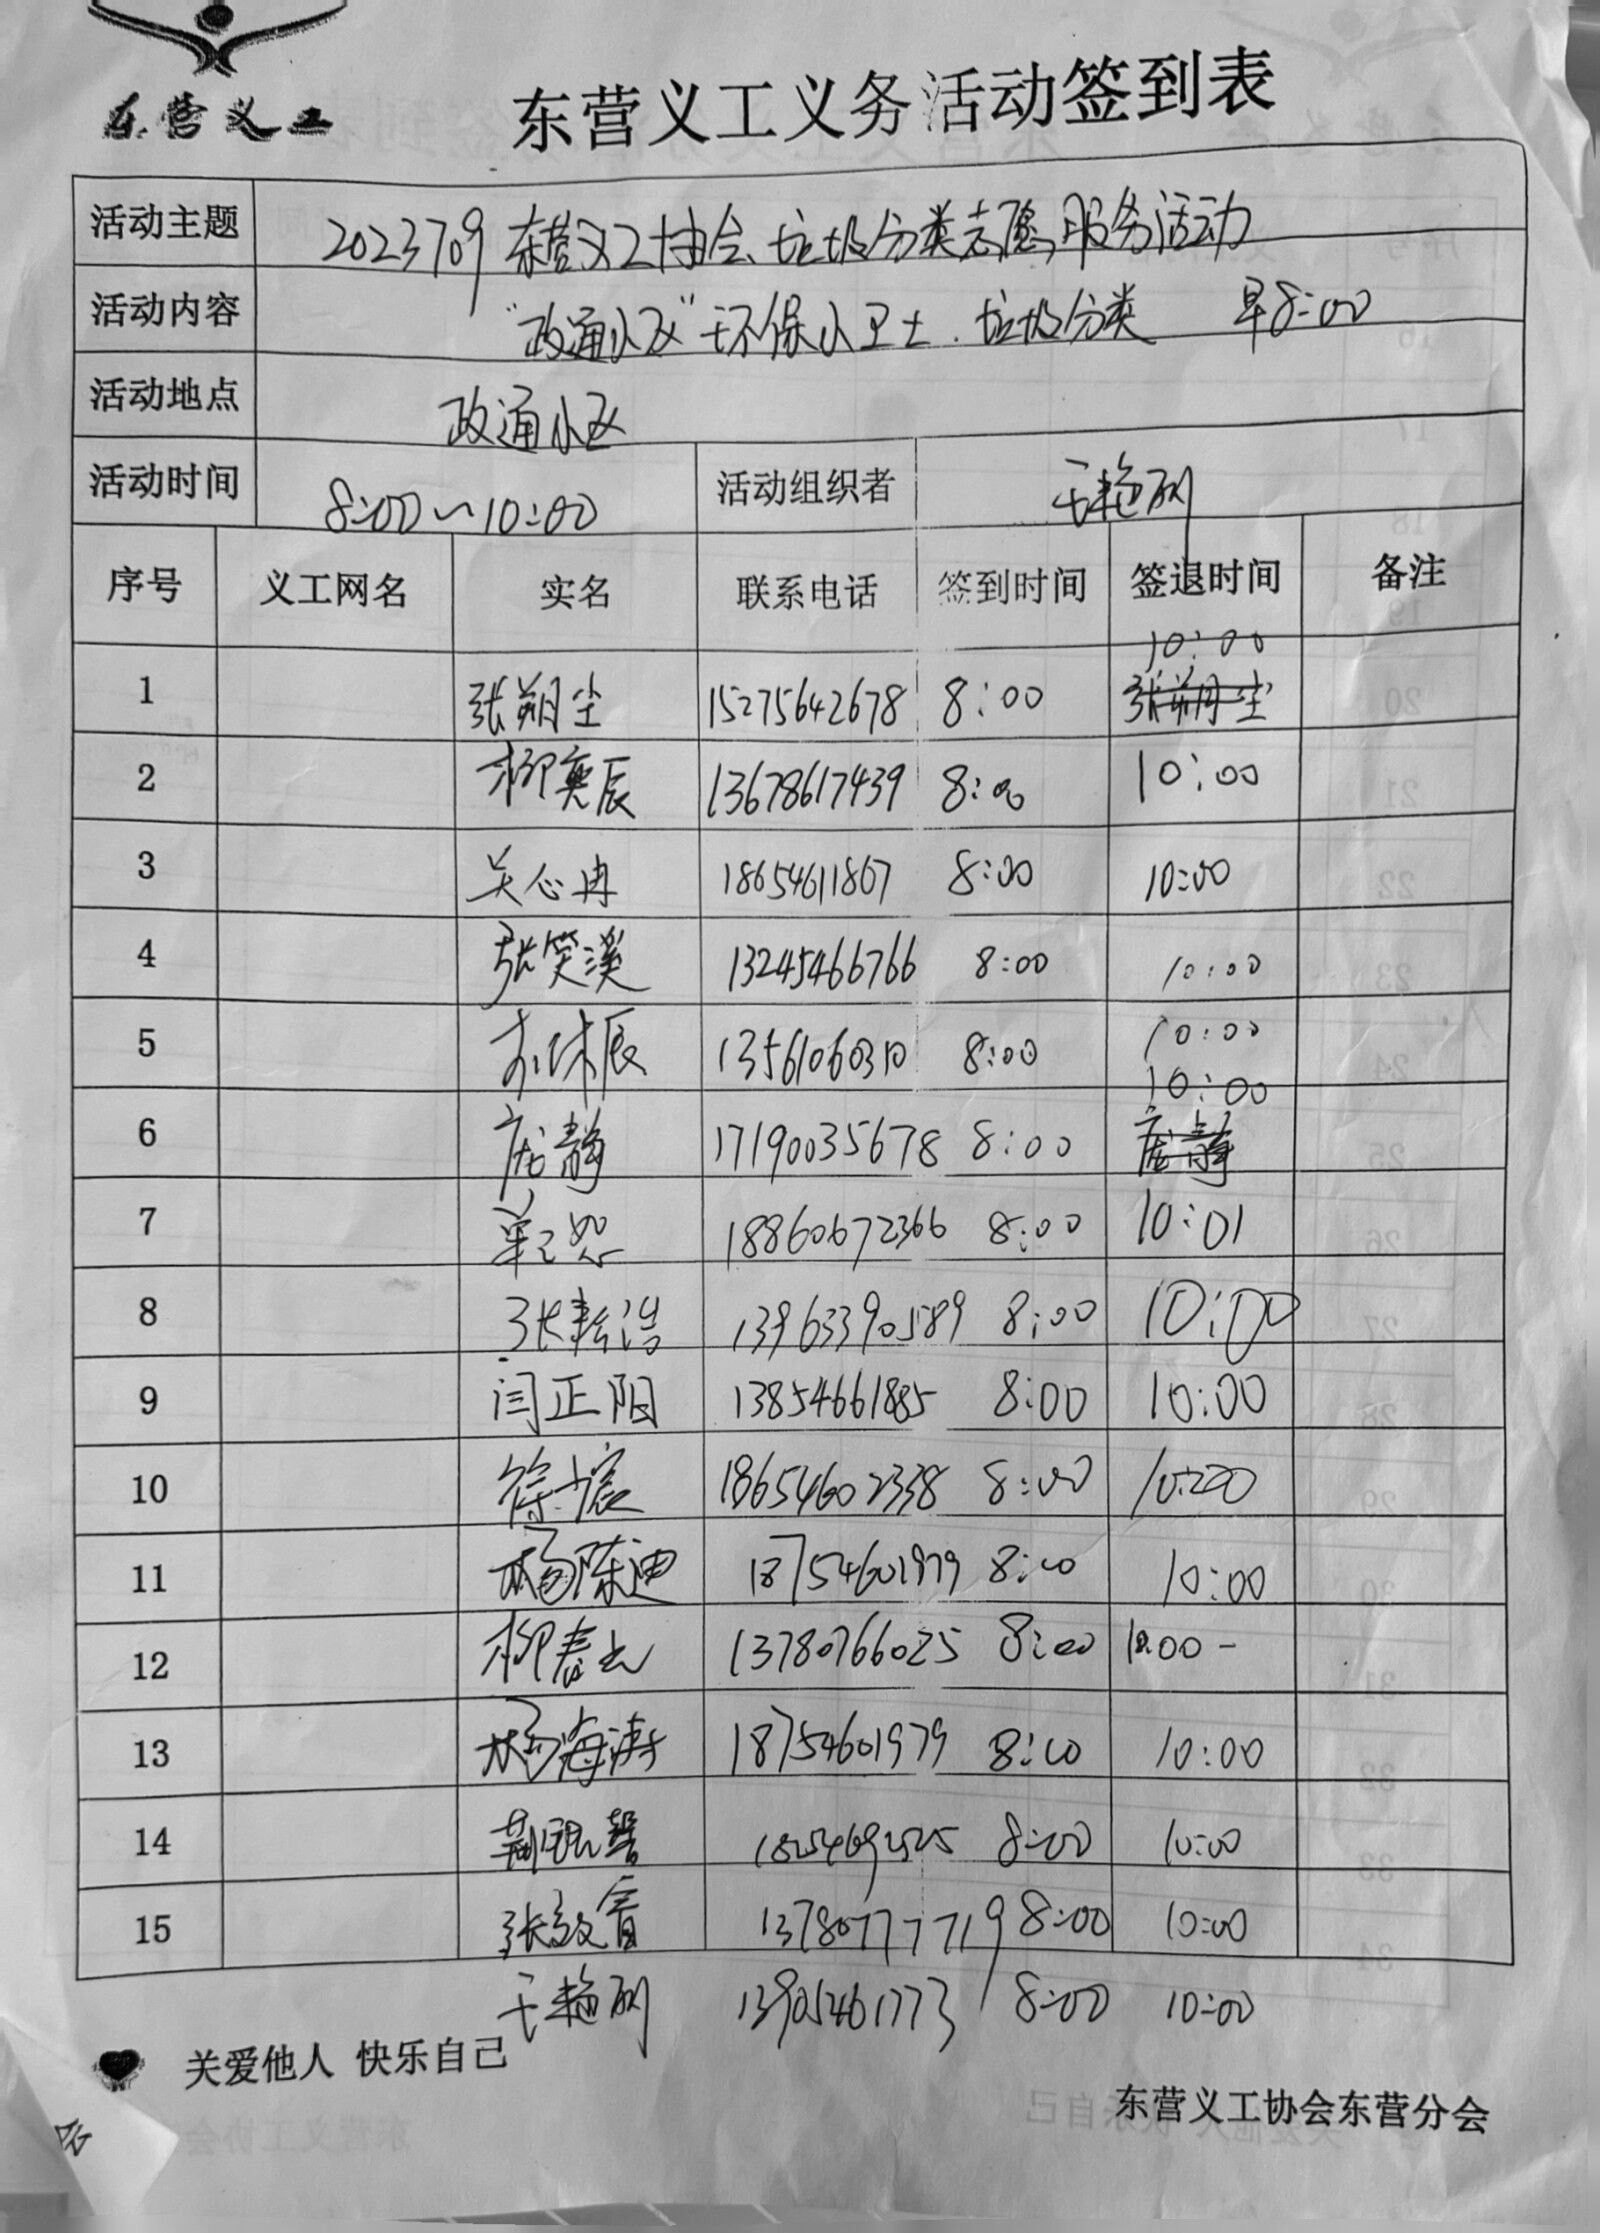 东营义工
东营义工义务活动签到表
活动主题 2023709 东营义工协会、垃圾分类志愿服务活动
活动内容 "政通小区"环保小卫士.垃圾分类 早8:00
活动地点 政通小区
活动时间 8:00~10:00 活动组织者 王艳丽
序号 义工网名 实名 联系电话 签到时间 签退时间 备注
10:00
1 张朔尘 15275642678 8:00 张朔尘
2 柳奕辰 13678617439 8:00 10:00
3 关心冉 18654611867 8:00 10:00
4 张笑溪 13245466766 8:00 10:00
5 辰 13561060310 8:00 10:00
10:00
6 庞静 17190035678 8:00 庞静
7 18860672366 8:00 10:01
8 张耘浩 13963390589 8:00 10:00
9 闫正阳 13854661885 8:00 10:00
10 徐 18654602338 8:00 10:00
11 杨陈迪 18754601979 8:00 10:00
12 柳春 13780766025 8:00 10:00 -
13 杨海涛 18754601979 8:00 10:00
14 8:00 10:00
15 张 13780777719 8:00 10:00
王艳丽 13905461773 8:00 10:00
关爱他人 快乐自己
东营义工协会东营分会